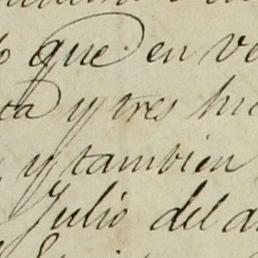 que en ve
ta y tres hi
y tambien
Julio del a